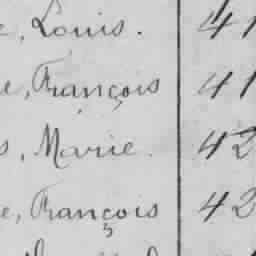 e, Louis. 41
e, François 41
s, Marie. 42
e, François 42